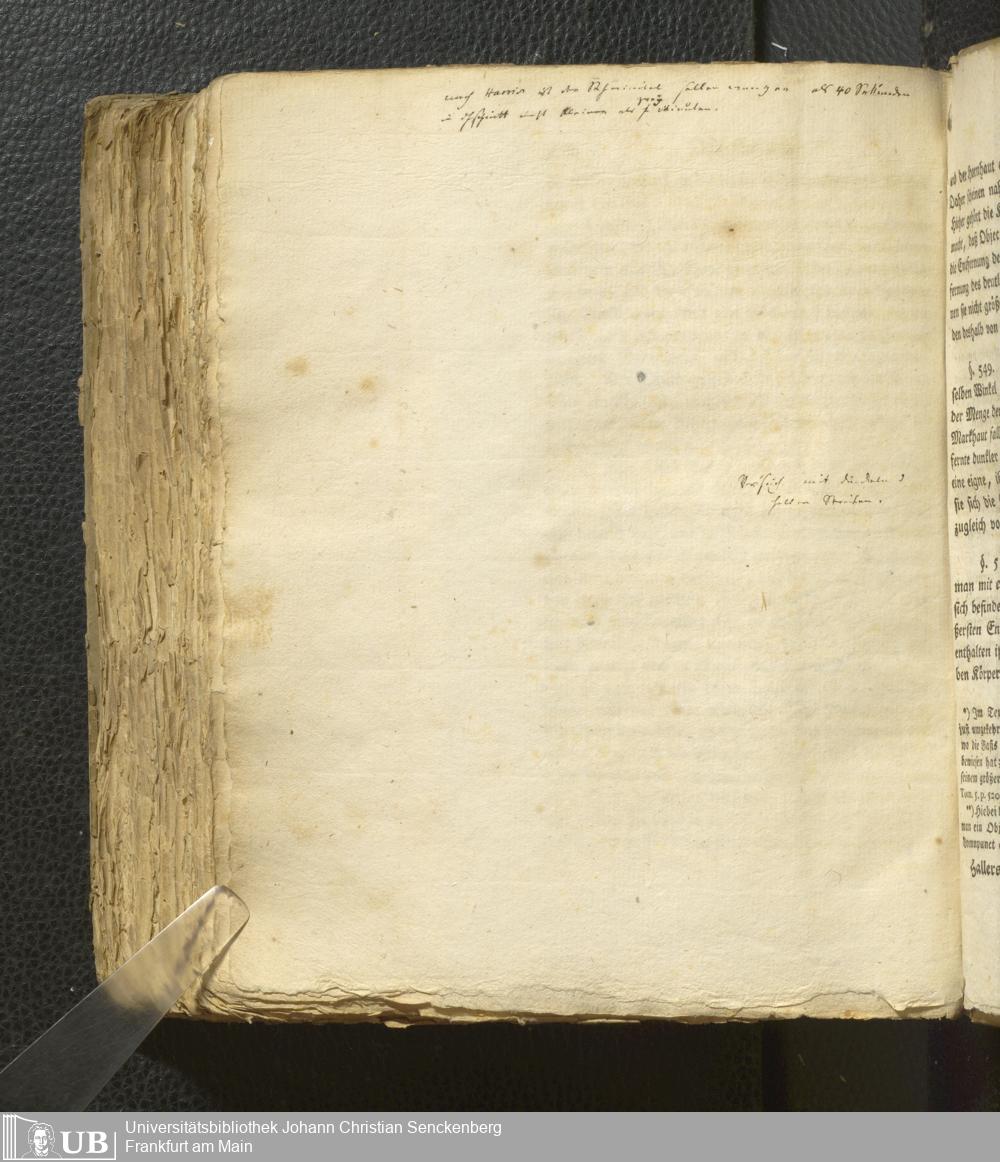 nach Harris ist der Sehwinkel selten weniger als 40 Sekunden
nicht kleiner als 2 Minuten.
Versuch mit dunkeln
hellen Streifen.
und der Hornhaut
Daher scheinen nah
Hieher gehört die
macht, daß Objec
die Entfernung de
fernung des deutl
nen sie nicht größ
den deshalb von
§. 549.
selben Winkel
der Menge der
Markhaut fall
fernte dunkler
eine eigne, ih
sie sich die
zugleich vo
§. 5
man mit e
sich befinde
ßersten En
enthalten i
ben Körper
*) Im Tex
just umgekehr
wo die Basis
bewiesen hat
seinem größer
Tom. 5. p. 520
**) Hiebei
man ein Obj
Hallers
UB
Universitätsbibliothek Johann Christian Senckenberg
Frankfurt am Main